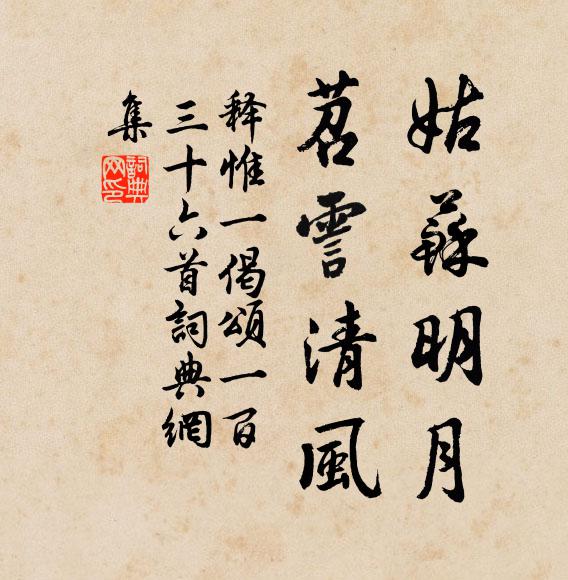 姑蘇明月
苕霅清風
释惟一偈頌一百
三十六首詞典網
集
詞典
网印